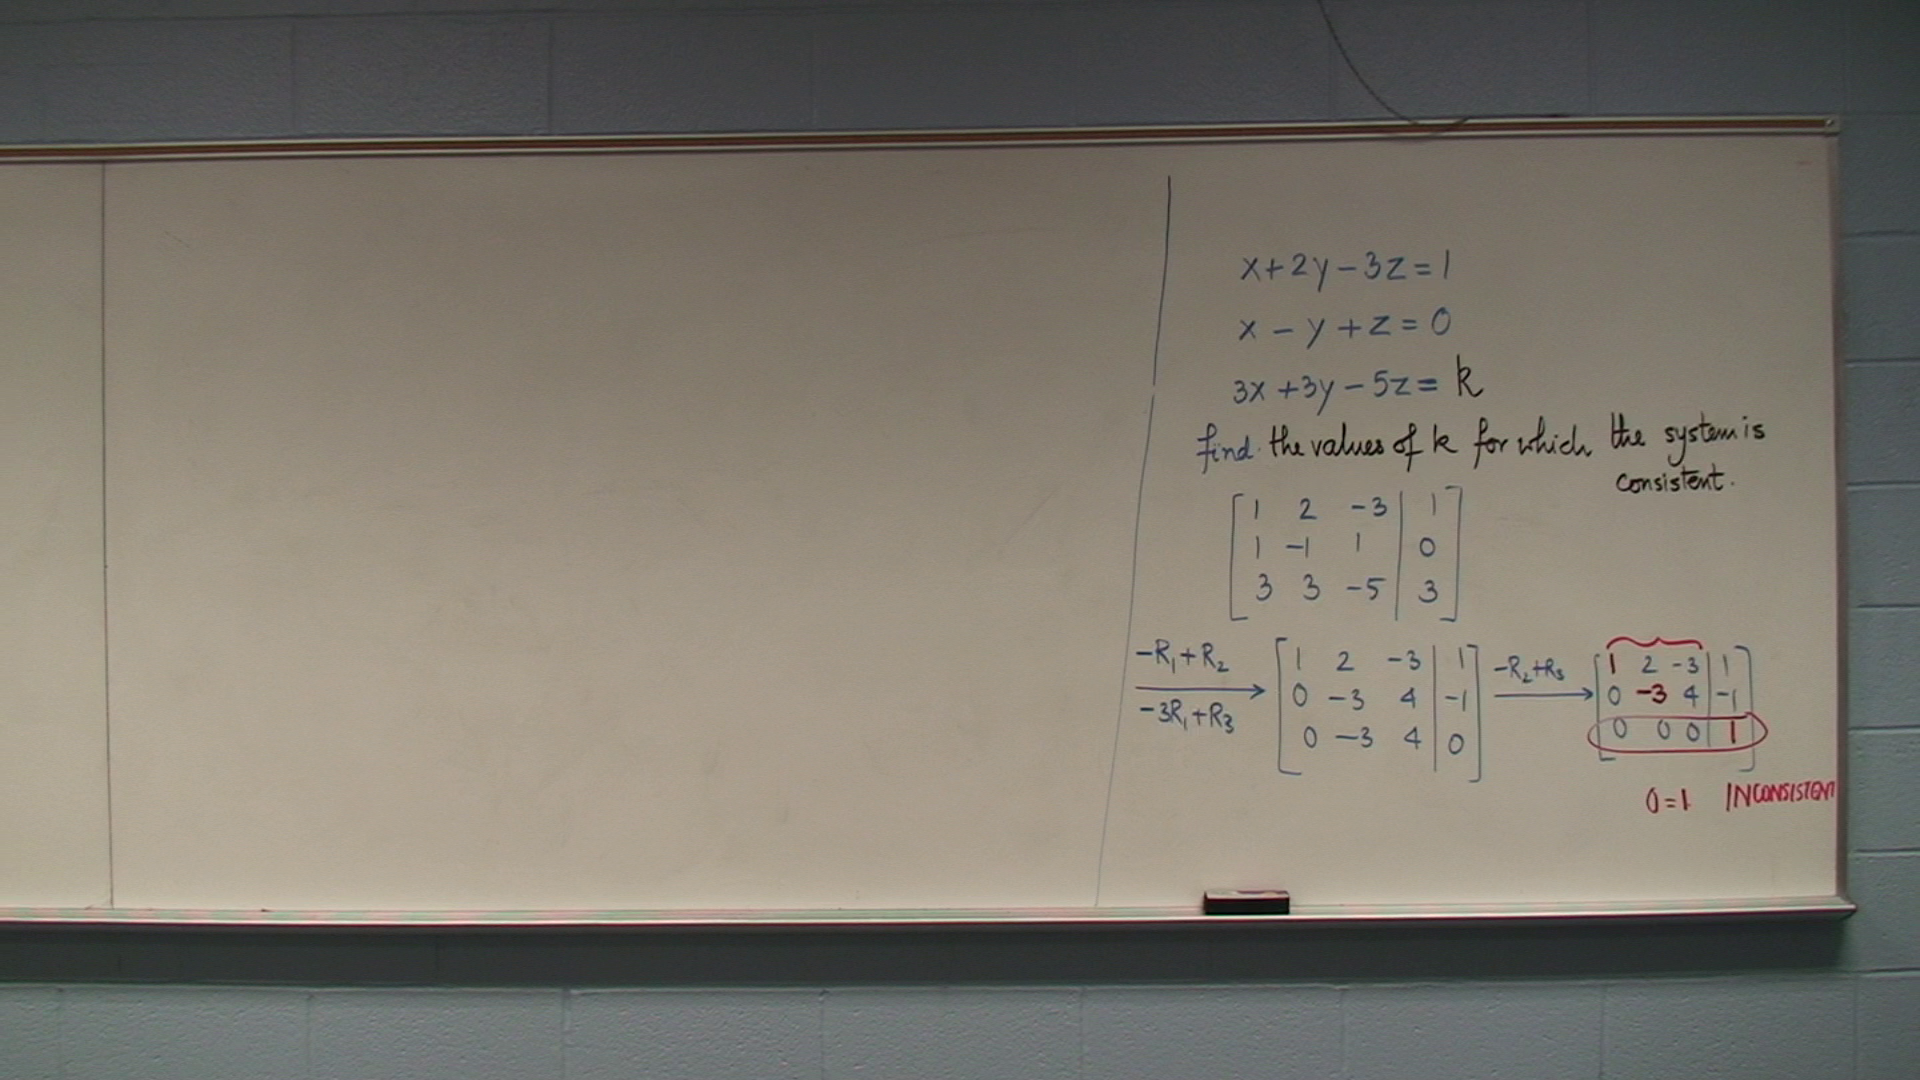 x+2y-3z=1
x-y+z=0
3x+3y-5z=k
find the values of k for which the system is
consistent.
1 2 -3 | 1
1 -1 1 | 0
3 3 -5 | 3
-R₁+R₂
-3R₁+R₃
1 2 -3 | 1
0 -3 4 | -1
0 -3 4 | 0
-R₂+R₃
1 2 -3 | 1
0 -3 4 | -1
0 0 0 | 1
0=1 INCONSISTENT